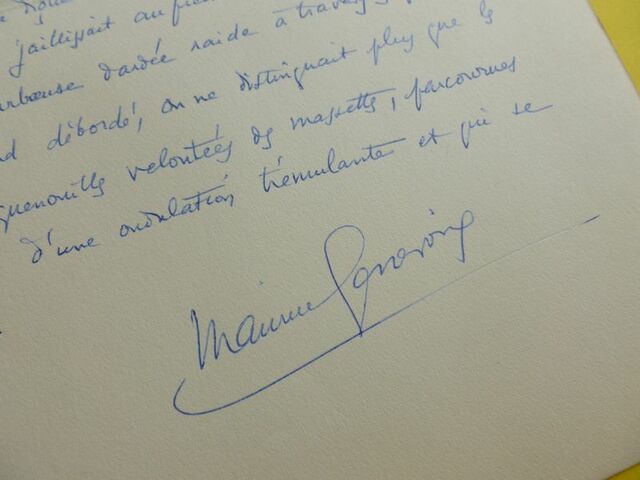 jaillissait au
dardée raide à travers
débordé, on ne distinguait plus que les
quenouilles veloutées des massettes, parcourues
d'une ondulation trémulante et qui se
Maurice Genevoix